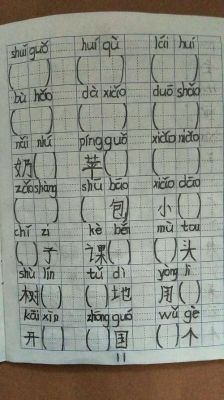 shuǐ guǒ huí qù lái huí
( ) ( ) ( )
bù hǎo dà xiǎo duō shǎo
( ) ( ) ( )
nǎi niú píng guǒ xiǎo niǎo
奶( ) 苹( ) ( )
zǎo shàng shū bāo xiǎo dāo
( ) ( )包 小( )
chí zi kè běn mù tou
( )子 课( ) ( )头
shù lín tǔ dì yòng lì
树( ) ( )地 用( )
kāi xīn zhōng guó wǔ gè
开( ) ( )国 ( )个
11